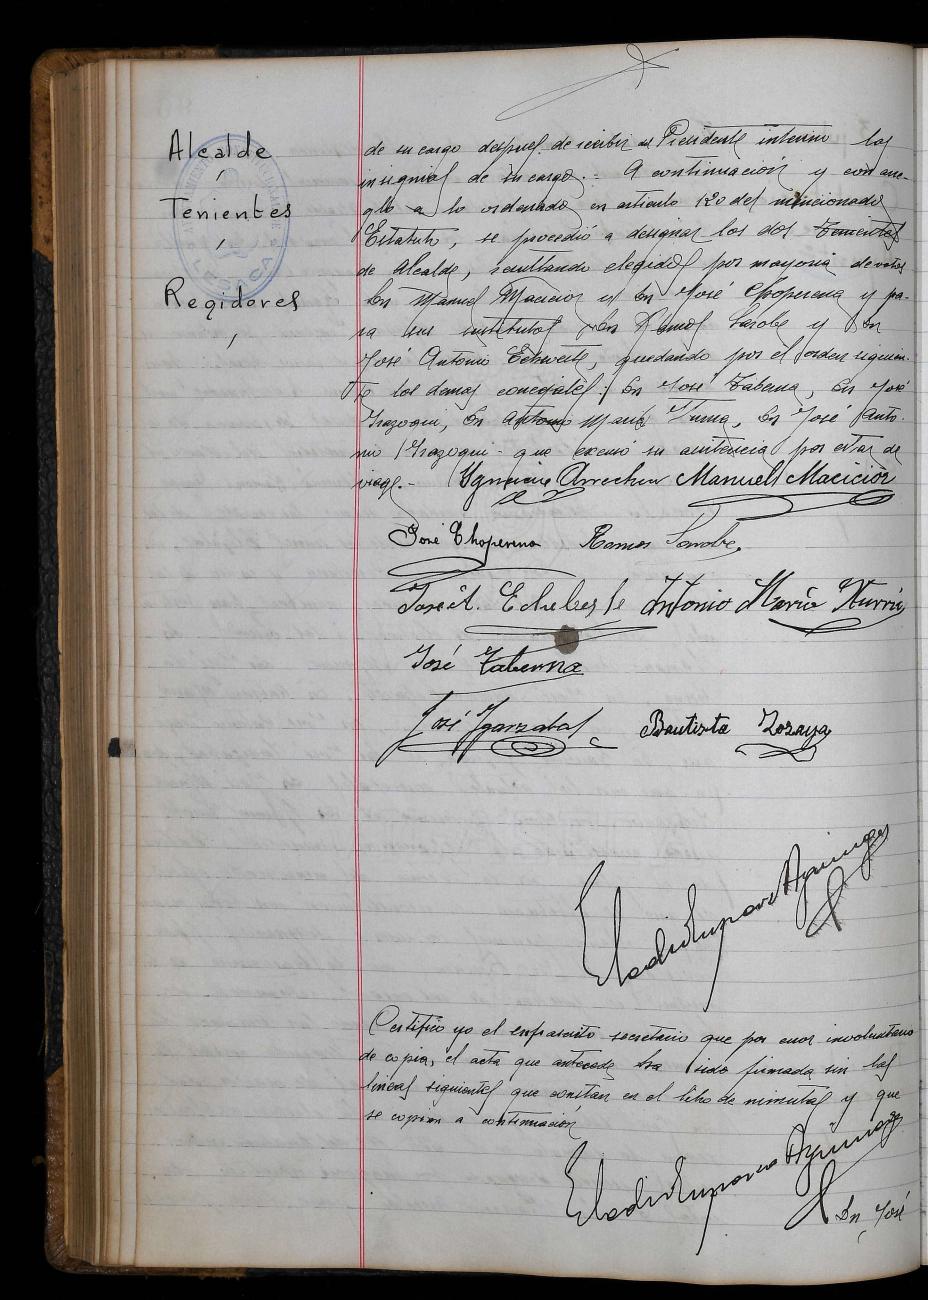 Alcalde
Tenientes
Regidores
de su cargo despues de recibir del Presidente interino las
insignias de su cargo.- A continuación y con arre-
glo a lo ordenado en artículo 120 del mencionado
Estatuto, se procedió a designar los dos Tenientes
de Alcalde, resultando elegidos por mayoria de votos
Dn Manuel Macicior y Dn José Choperena y pa-
ra sus sustitutos Dn Ramos Sarobe y Dn
José Antonio Echeveste, quedando por el orden siguien-
te los demas concejales: Dn José Taberna, Dn José
Irazoqui, Dn Antonio María Iturria, Dn José Anto-
nio Irazoqui - que excusó su asistencia por estar de
viage.- Ygnacio Arrechea Manuel Macicior
José Choperena Ramos Sarobe
José A. Echebeste Antonio María Yturria
José Taberna
José Ygarzabal Bautista Zozaya
Eladio Esparza
Certifico yo el infrascrito secretario que por error involuntario
de copia, el acta que antecede ha sido firmada sin las
lineas siguientes que constan en el libro de minutas y que
se copian a continuación
Eladio Esparza
Dn José